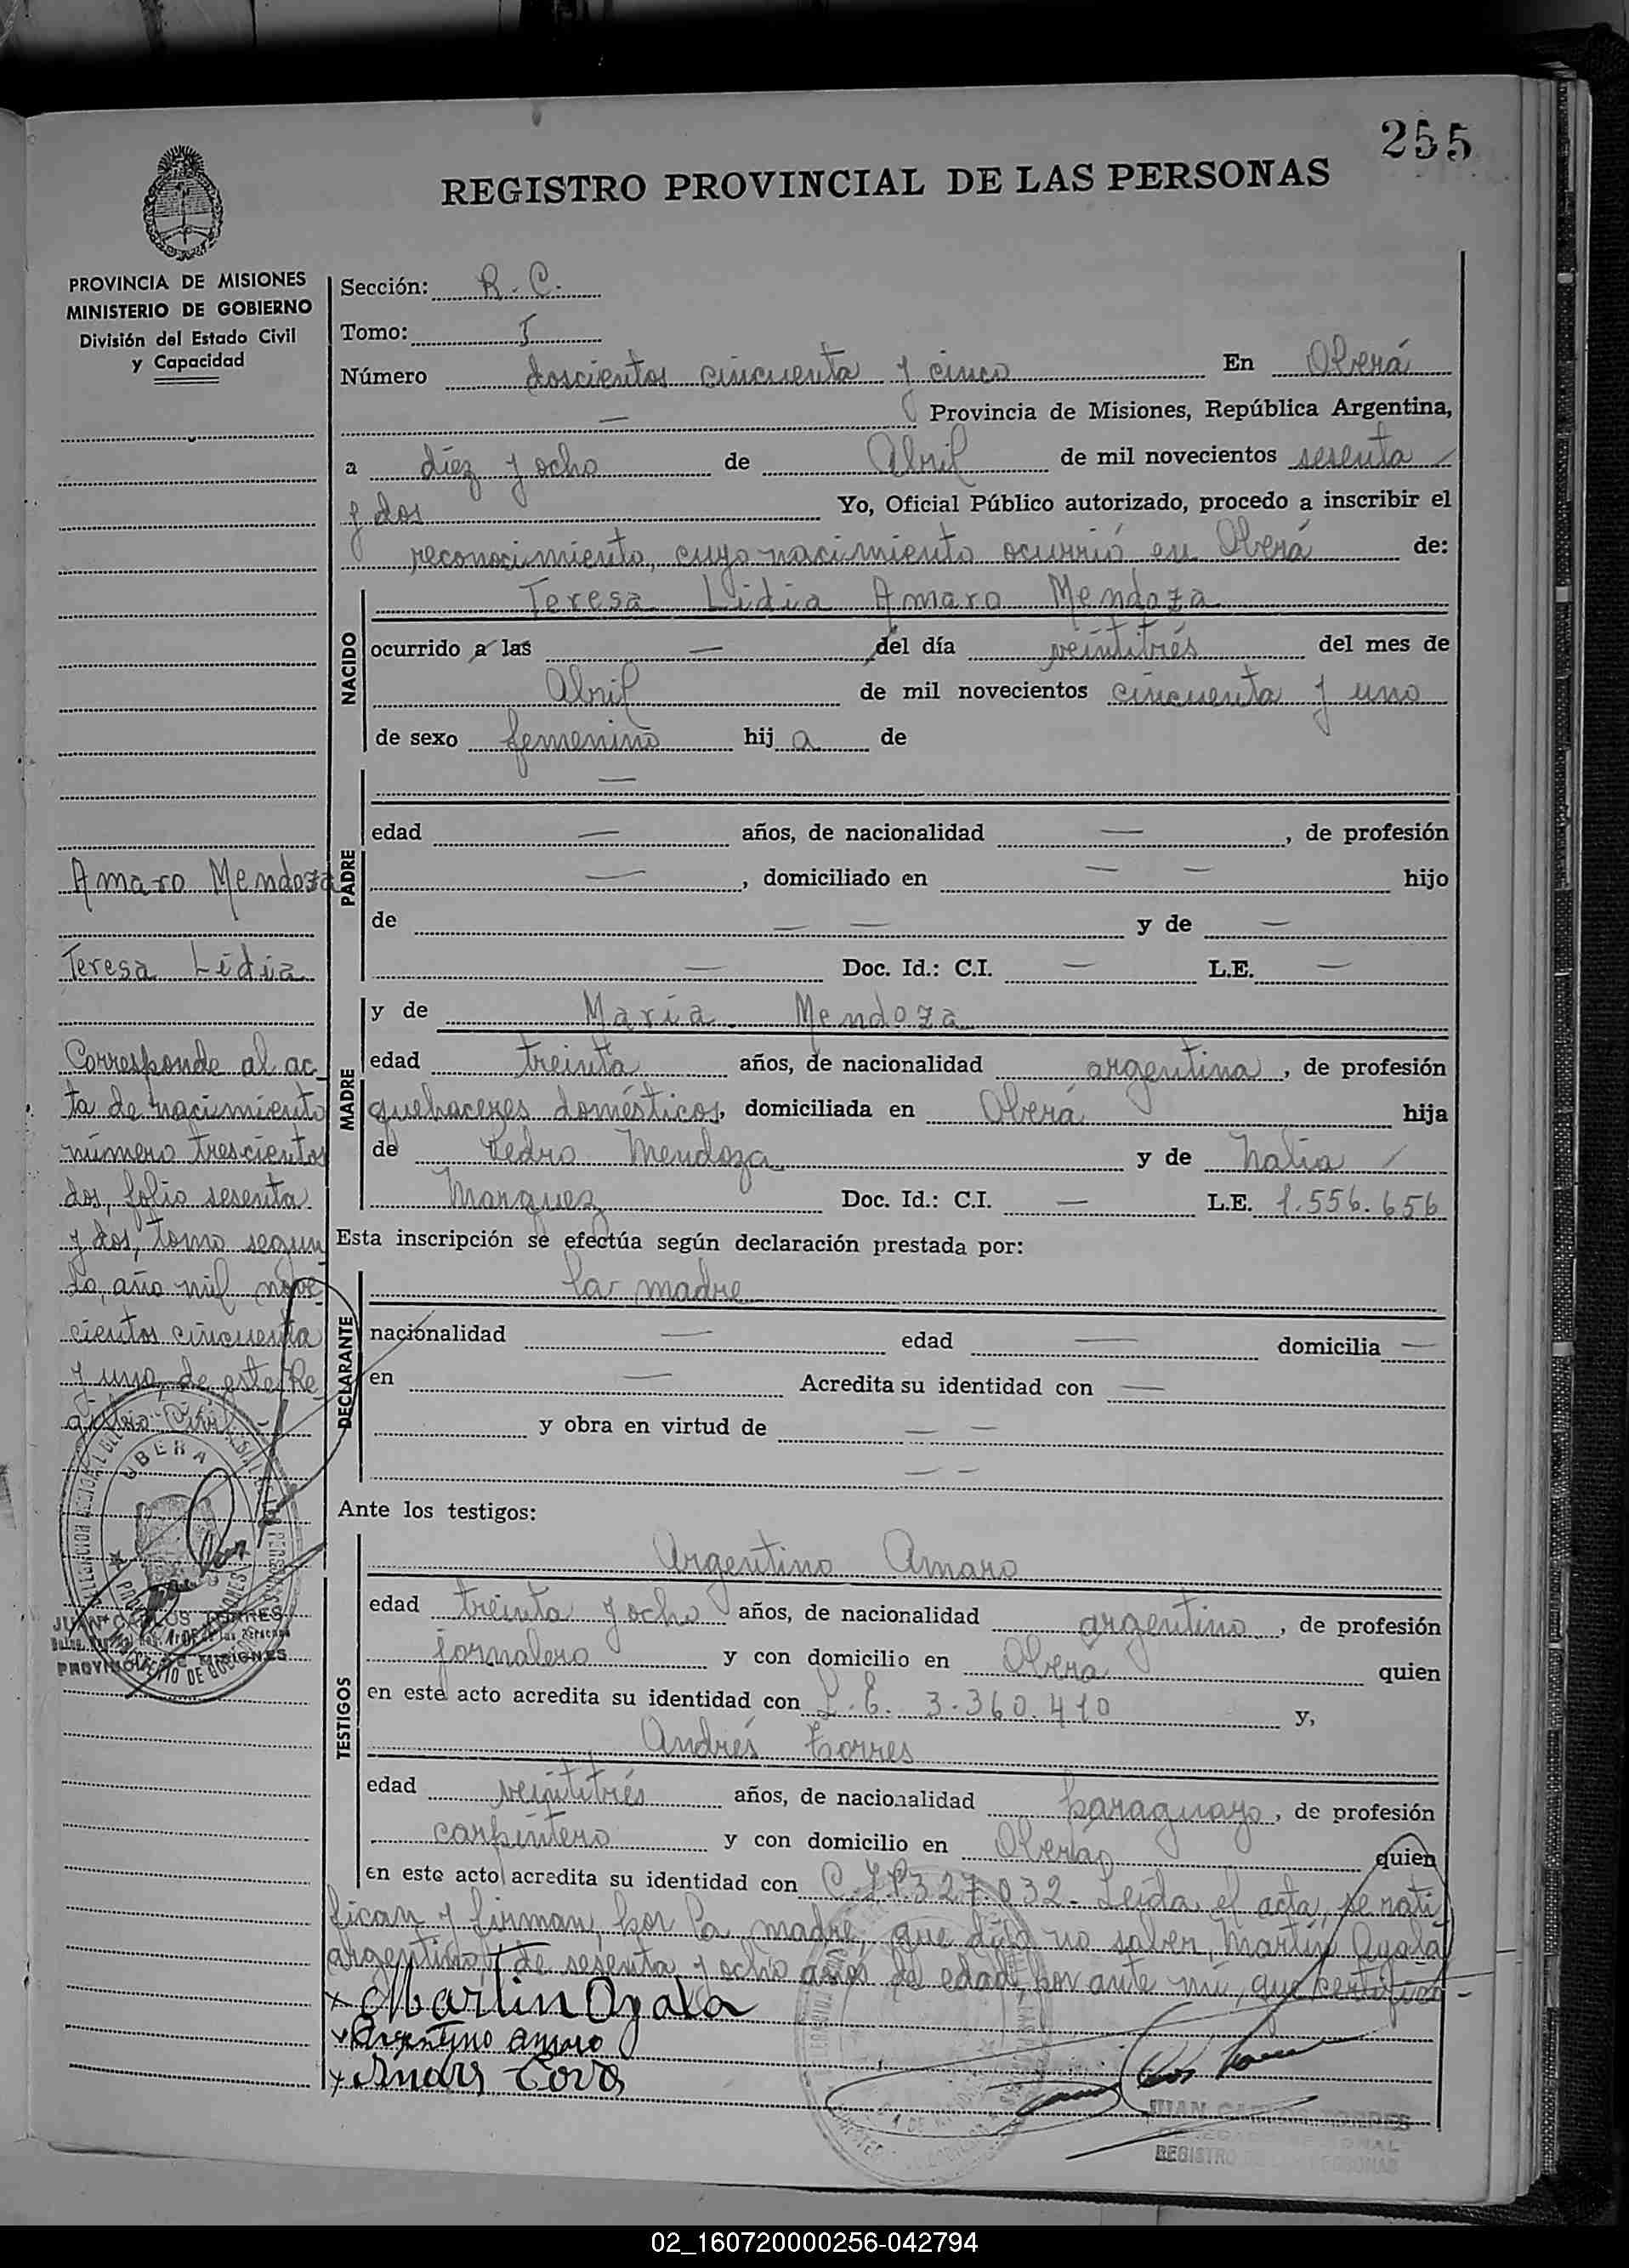 255
REGISTRO PROVINCIAL DE LAS PERSONAS
PROVINCIA DE MISIONES
MINISTERIO DE GOBIERNO
División del Estado Civil
y Capacidad
Amaro Mendoza
Teresa Lidia
Corresponde al ac-
ta de nacimiento
número trescientos
dos, folio sesenta
y dos, tomo segun-
do, año mil nove-
cientos cincuenta
y uno, de este Re-
gistro Civil
OBERA
JUAN CARLOS TORRES
PROVINCIA DE MISIONES
Sección: R. C.
Tomo: I
Número doscientos cincuenta y cinco En Oberá
— Provincia de Misiones, República Argentina,
a diez y ocho de Abril de mil novecientos sesenta
y dos Yo, Oficial Público autorizado, procedo a inscribir el
reconocimiento, cuyo nacimiento ocurrió en Oberá de:
NACIDO
Teresa Lidia Amaro Mendoza
ocurrido a las — del día veintitrés del mes de
Abril de mil novecientos cincuenta y uno
de sexo femenino hij a de
PADRE
—
edad — años, de nacionalidad —, de profesión
—, domiciliado en — — hijo
de — — y de —
— Doc. Id.: C.I. — L.E. —
MADRE
y de María Mendoza
edad treinta años, de nacionalidad argentina, de profesión
quehaceres domésticos, domiciliada en Oberá hija
de Pedro Mendoza y de Natia
Marquez Doc. Id.: C.I. — L.E. 1.556.656
Esta inscripción se efectúa según declaración prestada por:
DECLARANTE
la madre
nacionalidad — edad — domicilia —
en — Acredita su identidad con —
y obra en virtud de — —
— —
Ante los testigos:
TESTIGOS
Argentino Amaro
edad treinta y ocho años, de nacionalidad argentino, de profesión
jornalero y con domicilio en Oberá quien
en este acto acredita su identidad con L.E. 3.360.410 y,
Andrés Torres
edad veintitrés años, de nacionalidad paraguayo, de profesión
carpintero y con domicilio en Oberá quien
en este acto acredita su identidad con 327.032- Leída el acta, se rati-
fican y firman, por la madre, que dijo no saber, Martín Ayala
argentino, de sesenta y ocho años de edad, por ante mí, que certifico-
x Martin Ayala
x Argentino amaro
x
JUAN CARLOS TORRES
DELEGADO REGIONAL
REGISTRO DE LAS PERSONAS
02_160720000256-042794